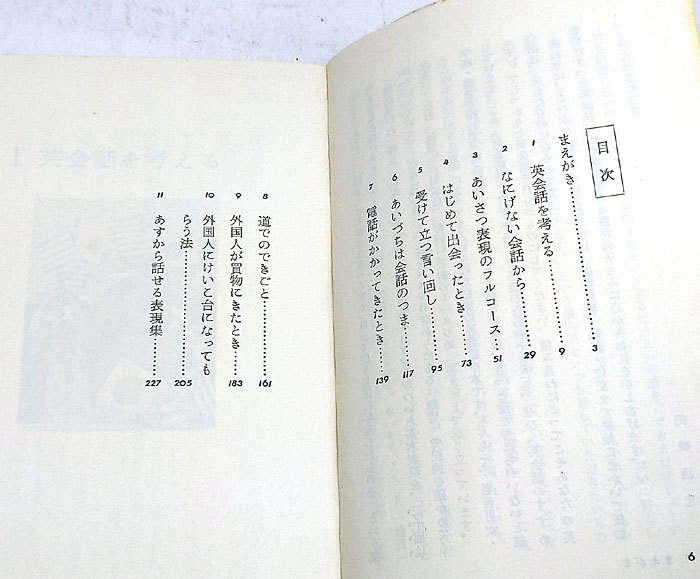 目次
まえがき……3
1 英会話を考える……9
2 なにげない会話から……29
3 あいさつ表現のフルコース……51
4 はじめて出会ったとき……73
5 受けて立つ言い回し……95
6 あいづちは会話のつま……117
7 電話がかかってきたとき……139
8 道でのできごと……161
9 外国人が買物にきたとき……183
10 外国人にけいこ台になっても
らう法……205
11 あすから話せる表現集……227
6